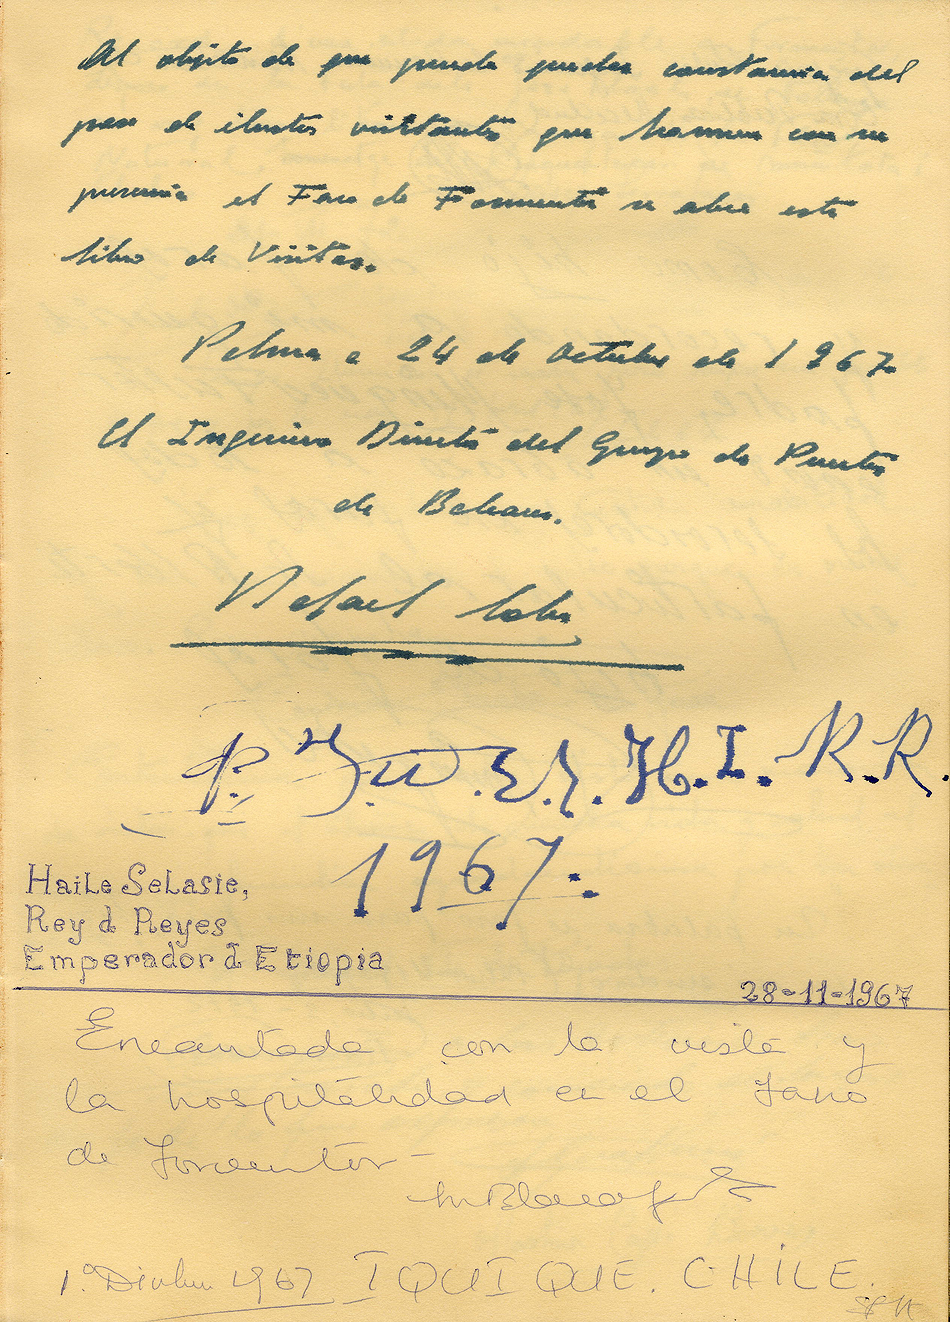 Al objeto de que pueda quedar constancia del
paso de ilustres visitantes que honran con su
presencia el Faro de Formentor se abre este
libro de Visitas.
Palma a 24 de Octubre de 1967
El Ingeniero Director del Grupo de Puertos
de Baleares.
Rafael Soler
H.I. R.R.
1967.
Haile Selasie,
Rey d Reyes
Emperador d Etiopia
28-11-1967
Encantada con la visita y
la hospitalidad en el Faro
de Formentor -
1º Dicbre 1967 IQUIQUE. CHILE.